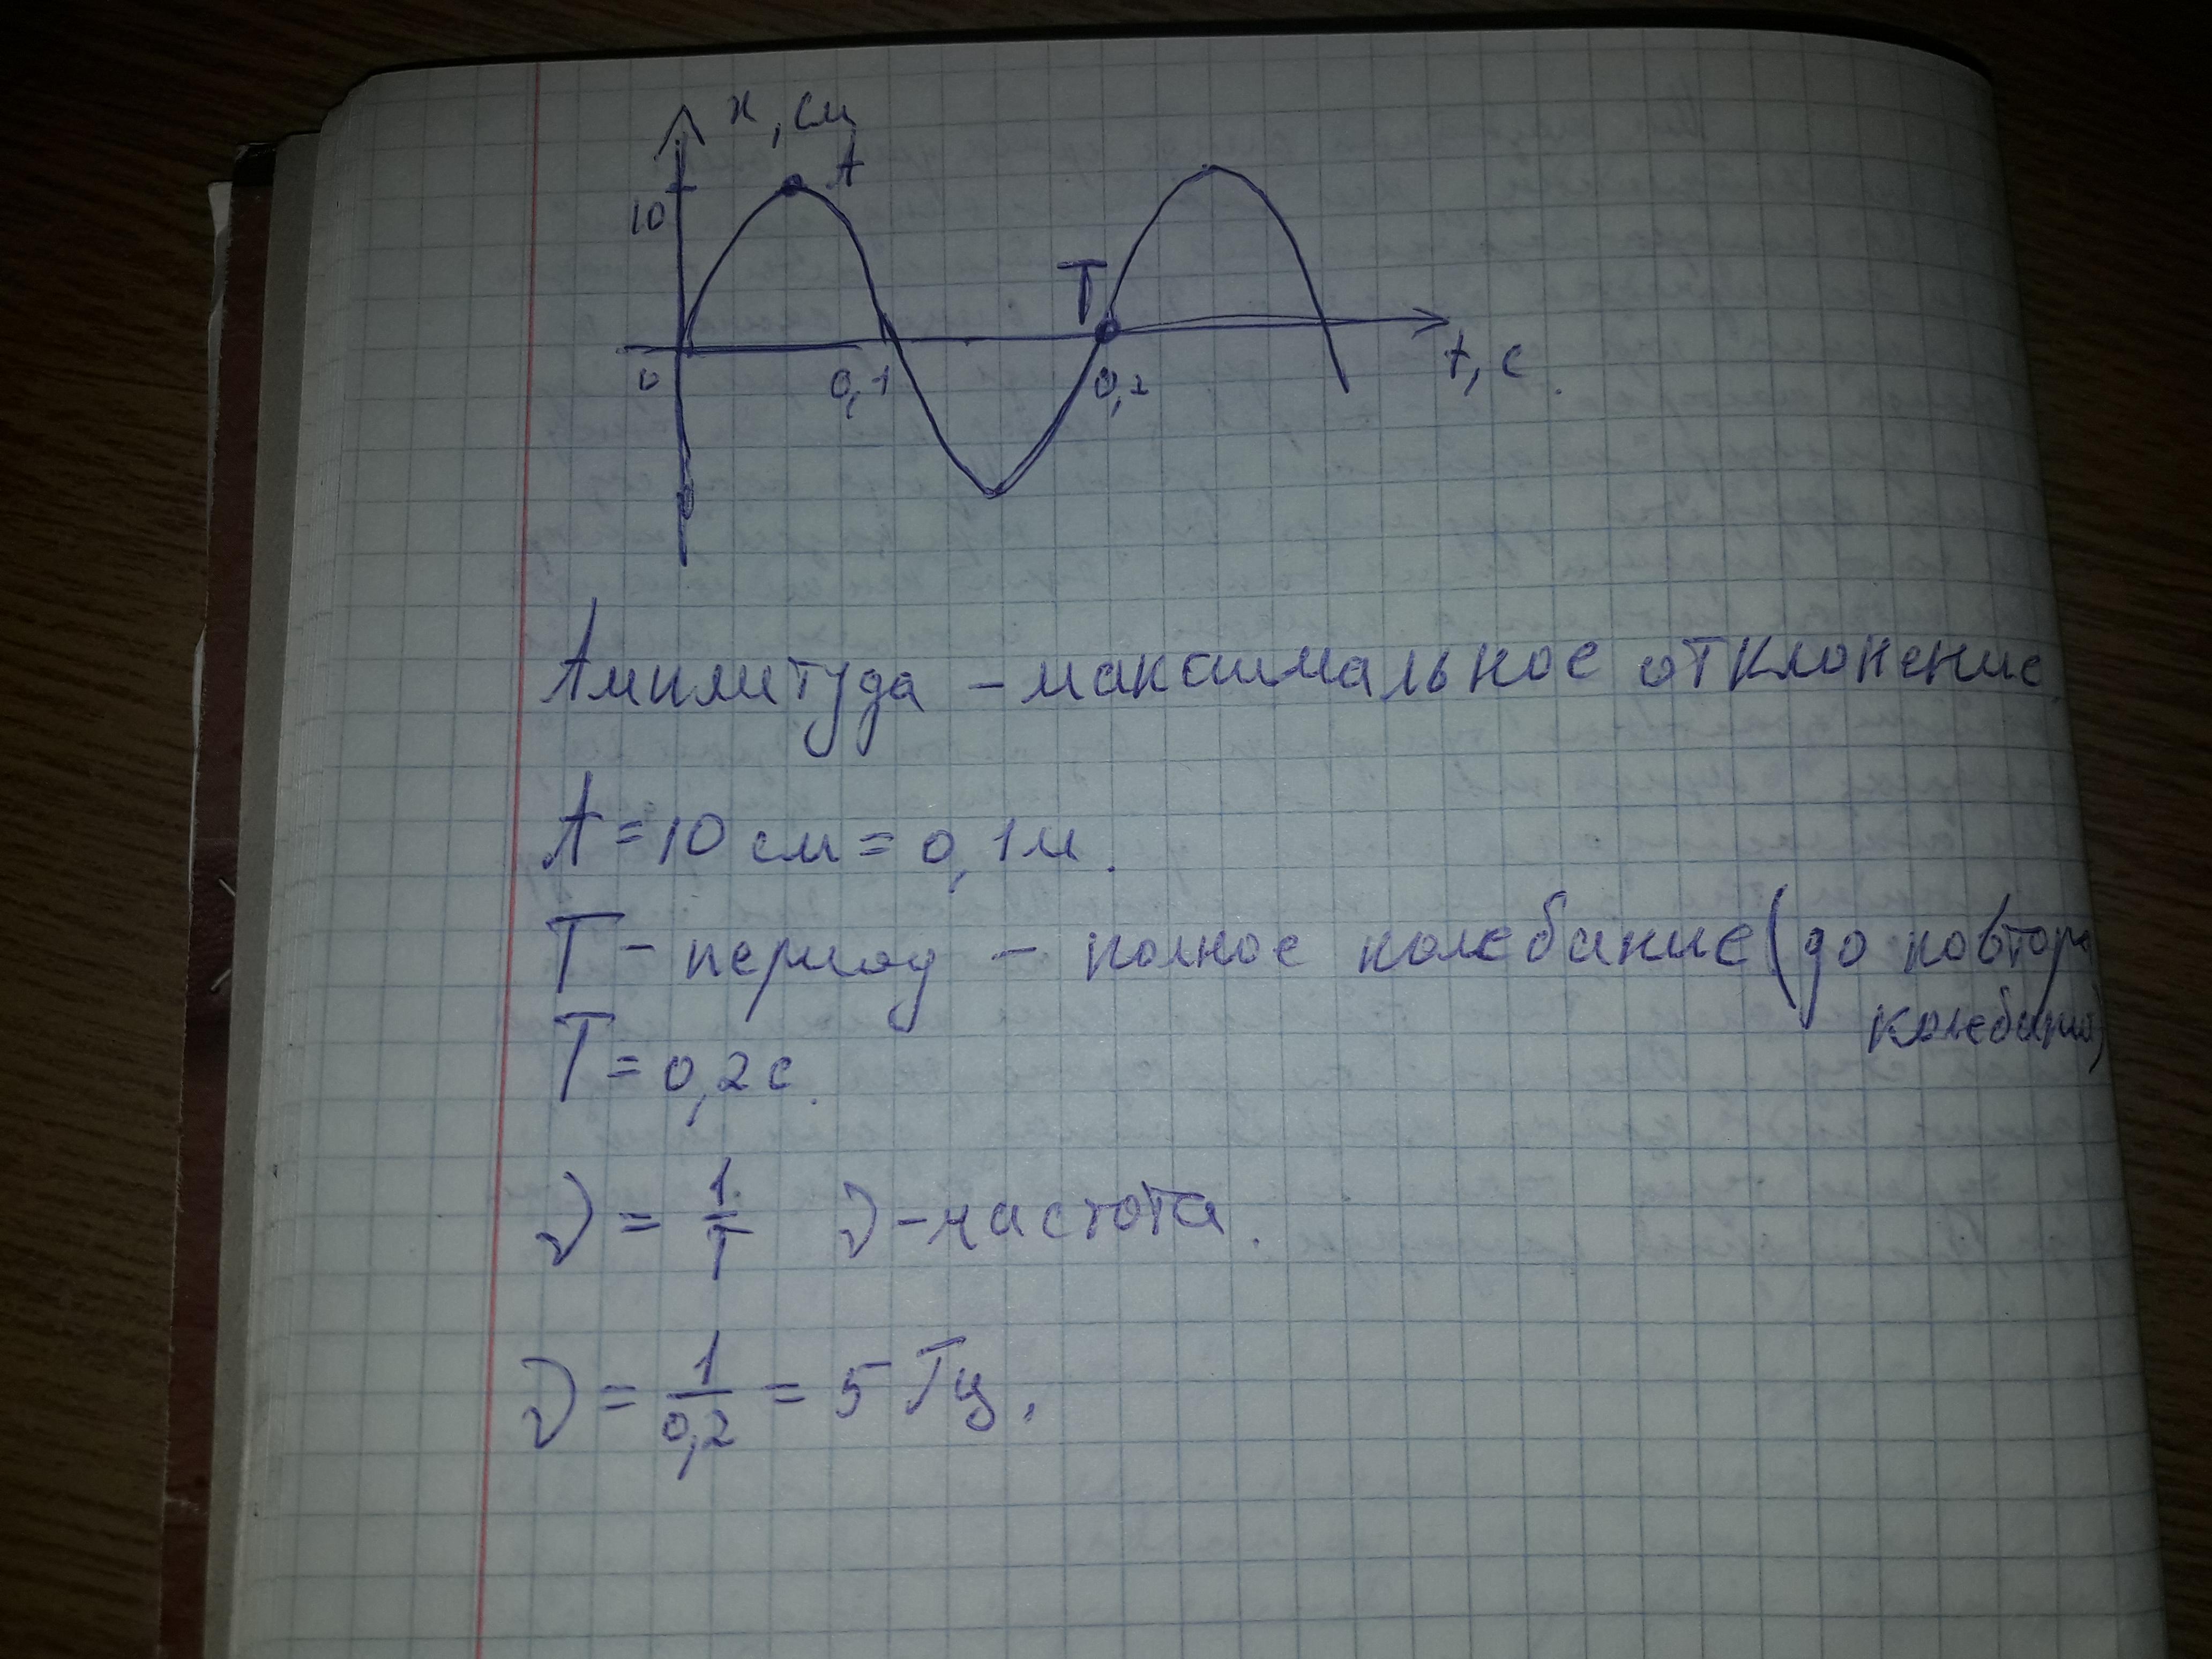 x, см
A
10
T
0
0,1
0,2
t, с.
Амплитуда – максимальное отклонение
A = 10 см = 0,1 м.
T – период – полное колебание (до повтора
колебаний)
T = 0,2 с.
ν = 1/T ν – частота.
ν = 1/0,2 = 5 Гц.